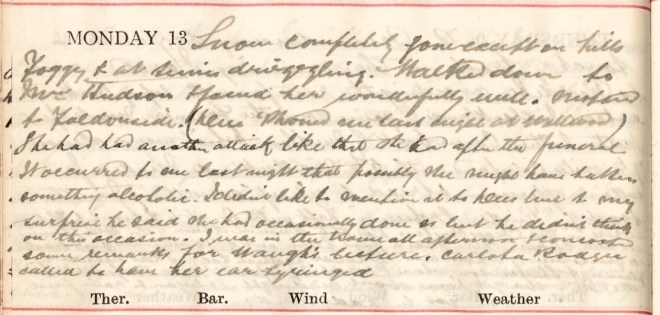 MONDAY 13 Snow completely gone except on hills
Foggy & at times driggling. Walked down to
Mrs Hudson & found her wonderfully well. Motored
to Faldonside. ( phoned me last night at )
She had had another attack like that she had after the funeral
It occurred to me last night that possibly she might have taken
something alcoholic. I didn't like to mention it to but to my
surprise he said she had occasionally done so but he didn't think
on this occasion. I was in the house all afternoon &
some remarks for Waugh's lecture. Carlota Rodger
called to have her ear syringed
Ther. Bar. Wind Weather